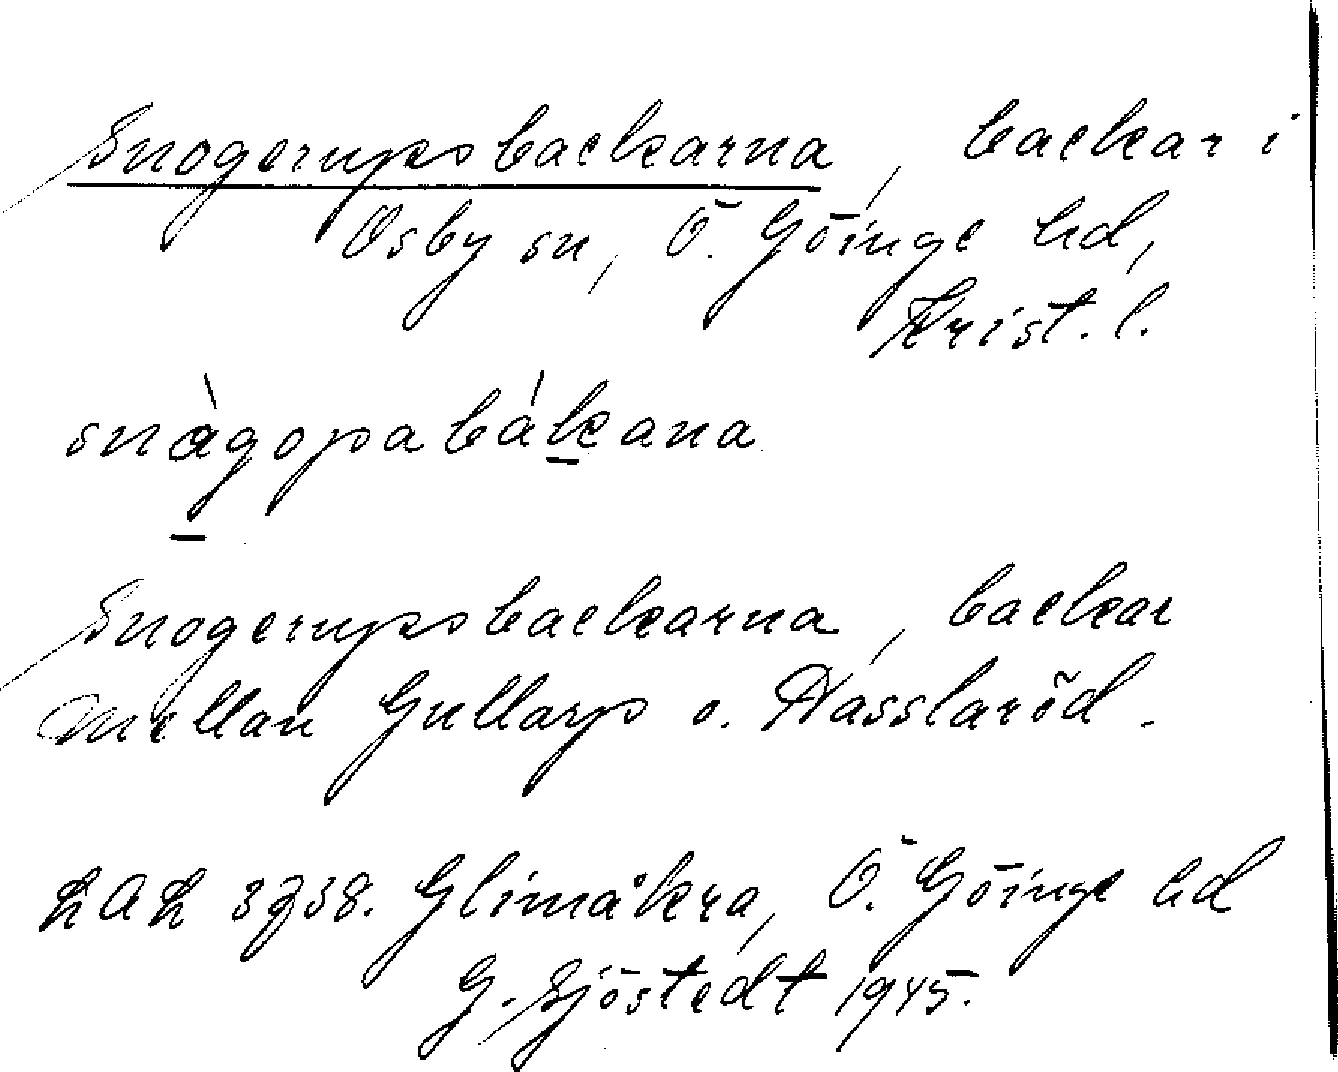 Snogerupsbackarna, backar i
Osby sn, Ö. Göinge hd,
Krist. l.
snàgopabákana
Snogerupsbackarna, backar
mellan Gullarp o. Hasslaröd.
LAL 3738. Glimåkra, Ö. Göinge hd
G. Sjöstedt 1945.